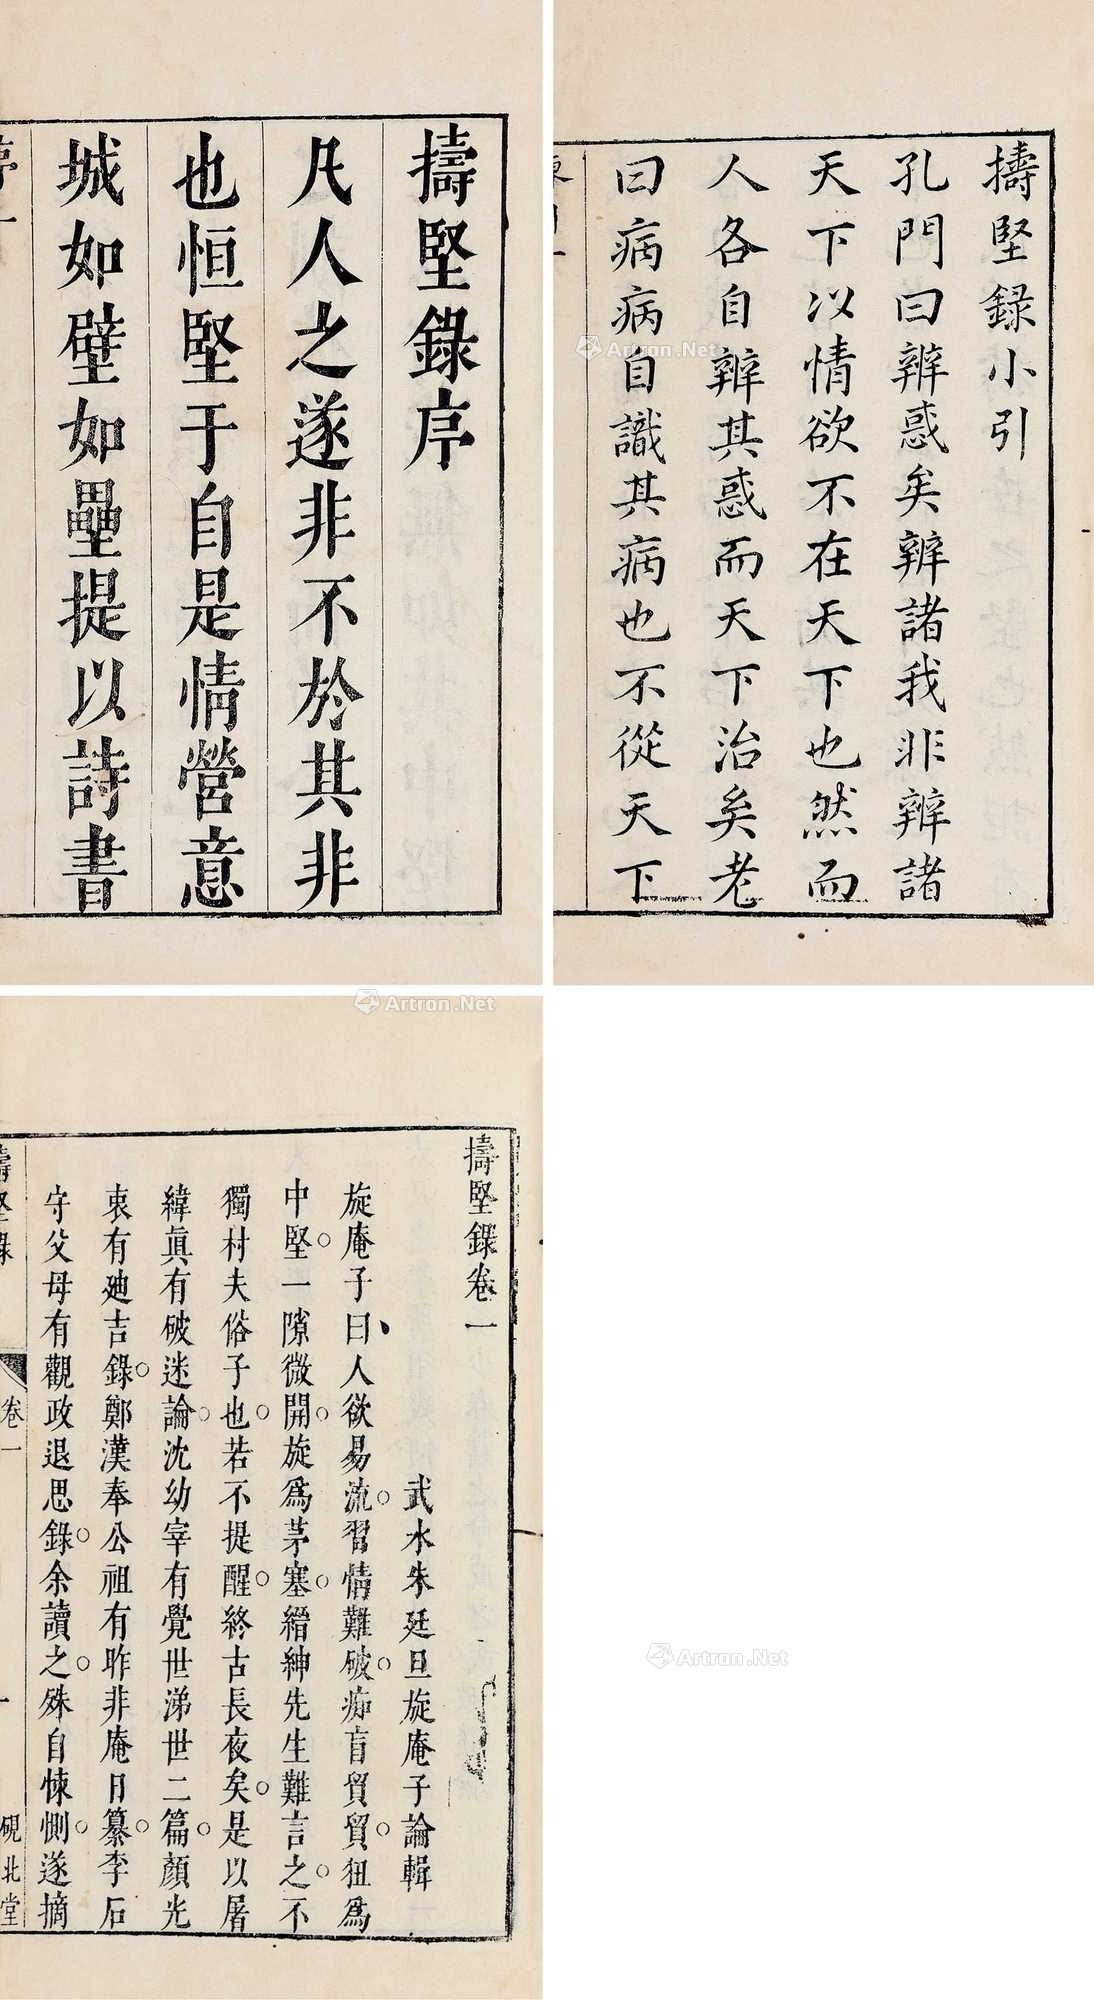 擣堅錄序
凡人之遂非不於其非
也恒堅于自是情營意
城如壁如壘提以詩書
擣堅録小引
孔門曰辨惑矣辨諸我非辨諸
天下以情欲不在天下也然而
人各自辨其惑而天下治矣老
曰病病自識其病也不從天下
擣堅錄卷一
武水朱廷旦旋庵子論輯
旋庵子曰人欲易流習情難破痴盲貿貿狃爲
中堅一隙微開旋爲茅塞縉紳先生難言之不
獨村夫俗子也若不提醒終古長夜矣是以屠
緯眞有破迷論沈幼宰有覺世涕世二篇顏光
衷有廸吉錄鄭漢奉公祖有昨非庵日纂李石
守父母有觀政退思錄余讀之殊自悚惻遂摘
擣堅錄
卷一
一
硯北堂
Artron.Net
Artron.Net
Artron.Net
Artron.Net